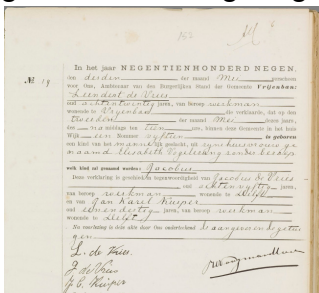 152
In het jaar NEGENTIENHONDERD NEGEN,
No 19.
den derden der maand Mei verscheen
voor Ons, Ambtenaar van den Burgerlijken Stand der Gemeente Vrijenban:
Leendert de Vries
oud achtentwintig jaren, van beroep werkman
wonende te Vrijenban die verklaarde, dat op den
tweeden der maand Mei dezes jaars,
des na middags ten een ure, binnen deze Gemeente in het huis
Wijk een Nommer vijftien is geboren
een kind van het mannelijk geslacht, uit zijn huisvrouw ge
naamd Elisabeth Vogelesang zonder beroep
welk kind zal genaamd worden: Jacobus
Deze verklaring is geschied in tegenwoordigheid van Jacobus de Vries
oud achtenvijftig jaren,
van beroep werkman wonende te Delft
en van Jan Karel Kuiper
oud eenendertig jaren, van beroep werkman
wonende te Delft
Na voorlezing is deze akte door Ons onderteekend de aangever en getui
gen
L. de Vries
J de Vries
J. C. Kuiper